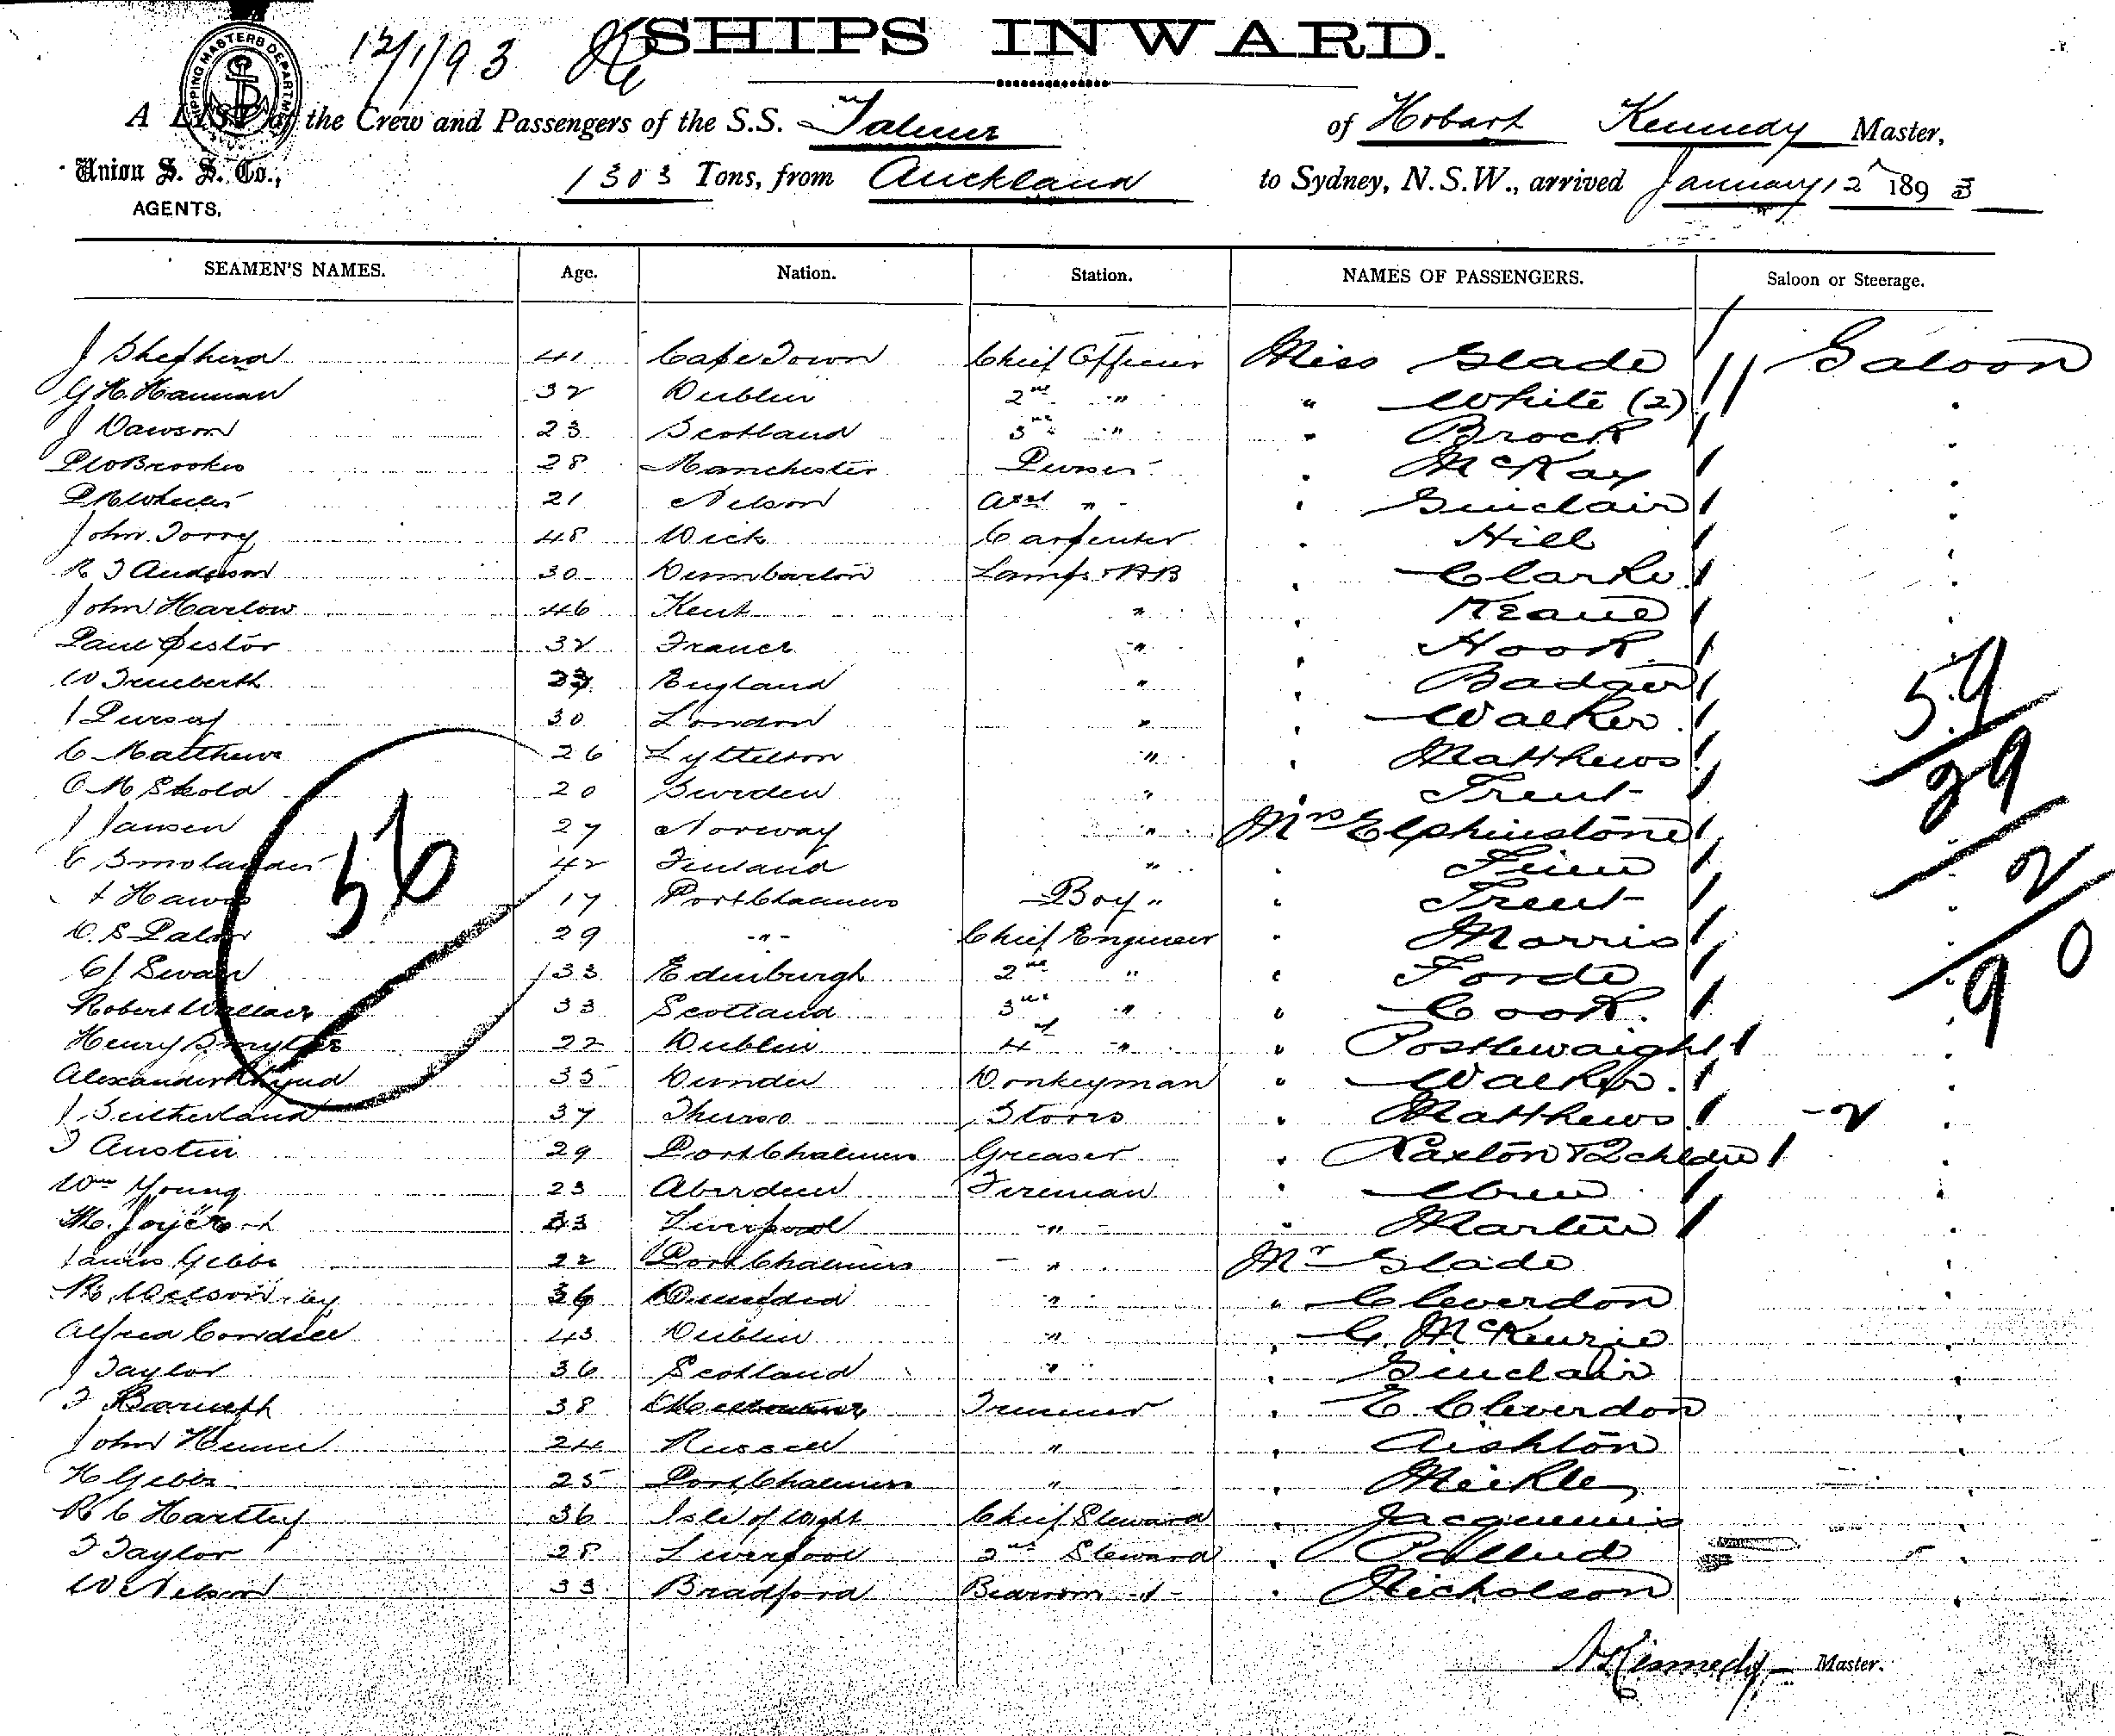 12/1/93 SHIPS INWARD.
SHIPPING MASTERS DEPARTMENT
A LIST of the Crew and Passengers of the S.S. Talune of Hobart Kennedy Master,
Union S. S. Co., AGENTS. 1303 Tons, from Auckland to Sydney, N.S.W., arrived January 12 1893
SEAMEN'S NAMES. Age. Nation. Station. NAMES OF PASSENGERS. Saloon or Steerage.
J Shepherd 41 Cape Town Chief Officer Miss Slade Saloon
G H Hannan 32 Dublin 2nd " " White (2)
J Dawson 23 Scotland 3rd " " Brock
P W Brookes 28 Manchester Purser McKay
21 Nelson Asst " Sinclair
John Torry 48 Wick Carpenter Hill
R J Anderson 30 Dumbarton Lamps & AB Clarke
John Harlow 46 Kent " Keane
Paul 32 France " Hook
W 33 England " Badger
J 30 London " Walker
C Matthews 26 Lyttelton " Matthews
O M Skold 20 Sweden " Trent
J Jansen 27 Norway " Mrs Elphinstone
C Smolander 42 Finland "
17 Port Chalmers Boy " Trent
29 " Chief Engineer Morris
C J Swan 33 Edinburgh 2nd " Forde
Robert Wallace 33 Scotland 3rd " Cook
Henry Smythe 22 Dublin 4th " Postlewaight
Alexander Rhynd 35 Dundee Donkeyman Walker
J Sutherland 37 Thurso Stores Matthews - 2
T Austin 29 Port Chalmers Greaser Paxton & 2 children
Wm Young 23 Aberdeen Fireman
33 Liverpool " Martin
James Gebbie 22 Port Chalmers " Mr Slade
R Wilson 36 Dunedin " Cleverdon
Alfred Cordell 43 Dublin " G. McKenzie
J Taylor 36 Scotland " Sinclair
38 Melbourne Trimmer E Cleverdon
John 24 Russell " Aishton
H Gibbs 25 Port Chalmers " Meikle
R C Hartley 36 Isle of Wight Chief Steward
T Taylor 28 Liverpool 2nd Steward
W Nelson 33 Bradford Nicholson
56
59
29
2
90
A Kennedy Master.